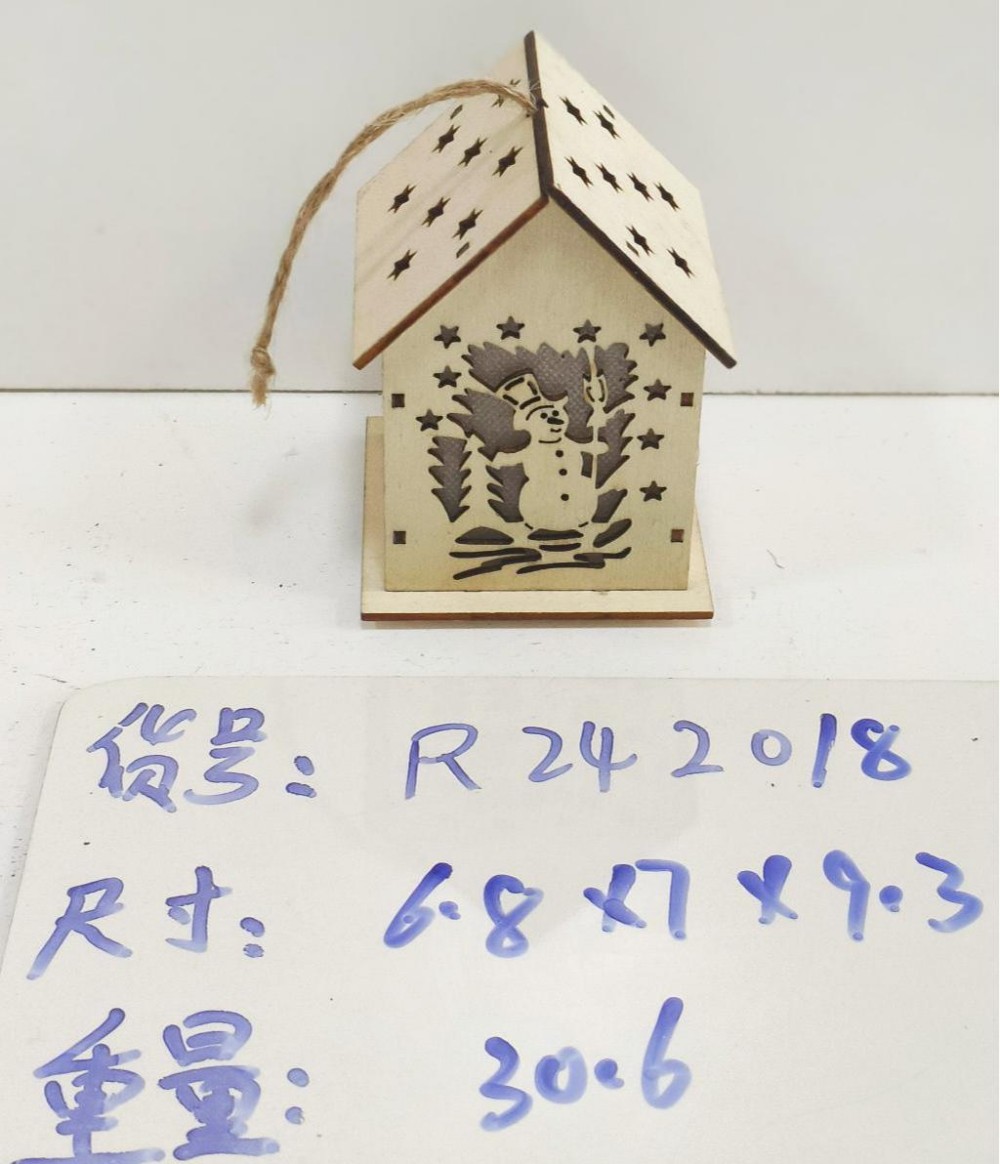 货号: R242018
尺寸: 6.8×7×9.3
重量: 30.6